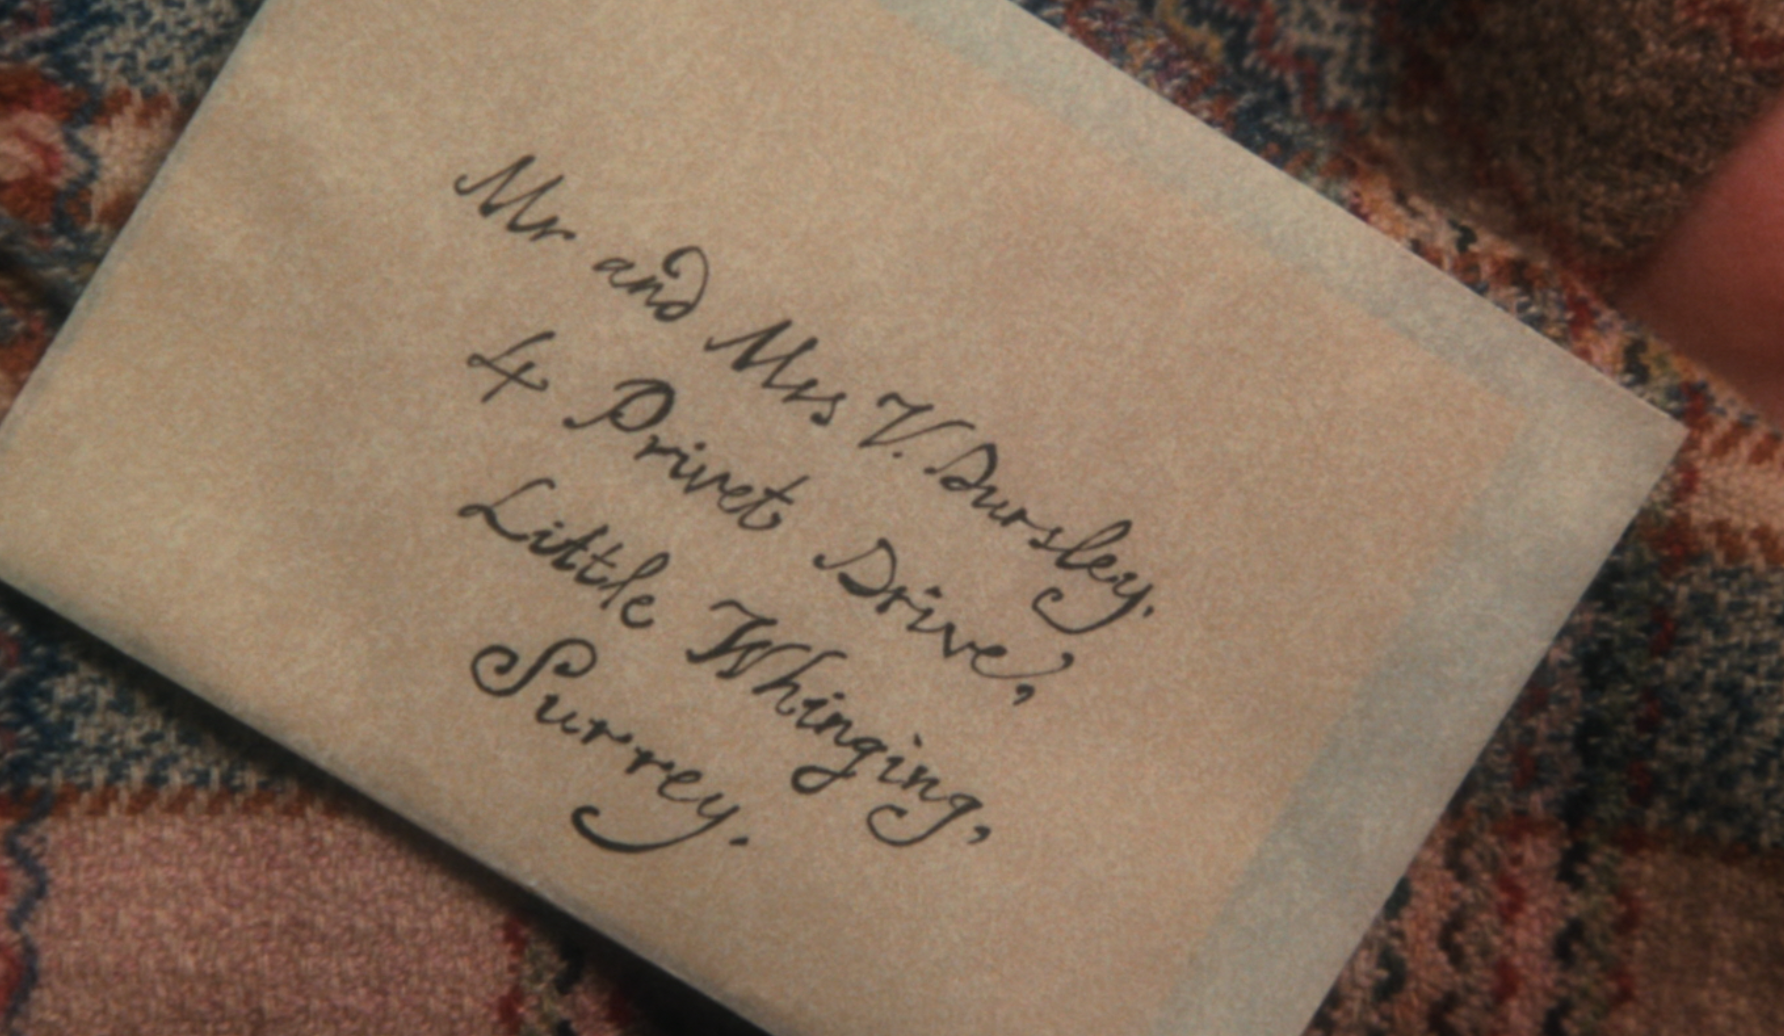 Mr and Mrs V. Dursley.
4 Privet Drive,
Little Whinging,
Surrey.